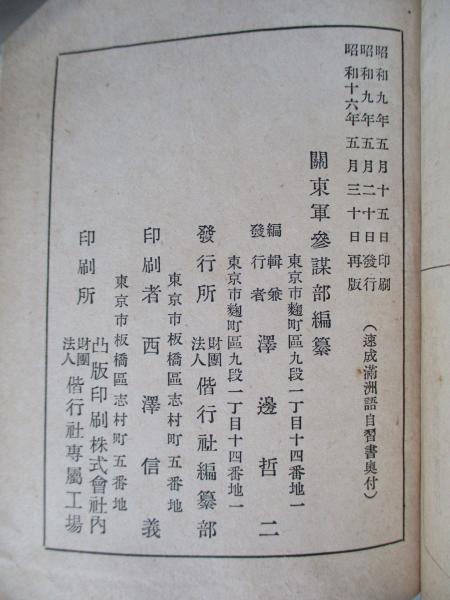 昭和九年五月十五日印刷
昭和九年五月二十日發行
昭和十六年五月三十日再版
（速成滿洲語自習書奥付）
關東軍參謀部編纂
東京市麹町區九段一丁目十四番地一
編輯兼發行者 澤邊哲二
東京市麹町區九段一丁目十四番地一
發行所 財團法人 偕行社編纂部
東京市板橋區志村町五番地
印刷者 西澤信義
東京市板橋區志村町五番地
凸版印刷株式會社內
印刷所 財團法人 偕行社專屬工場